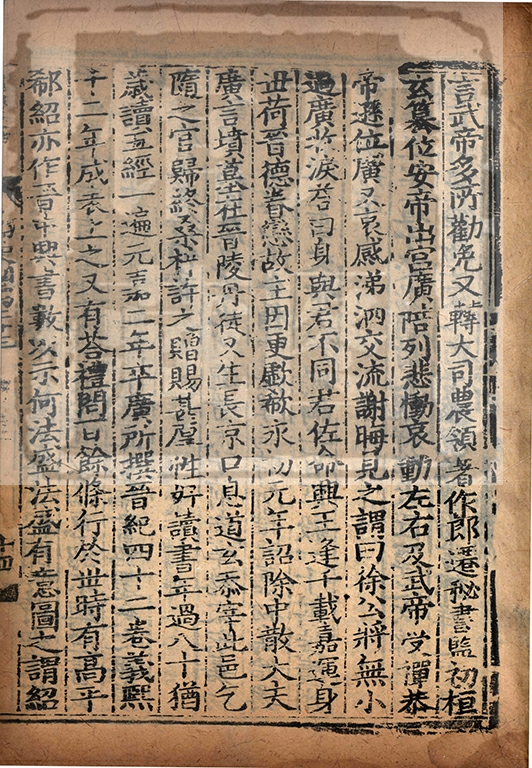 言武帝多所勸免又轉大司農領著作郎遷秘書監初桓
玄篡位安帝出宮廣陪列悲慟哀動左右及武帝受禪恭
帝遜位廣又哀感涕泗交流謝晦見之謂曰徐公將無小
過廣收淚荅曰身與君不同君佐命興王逢千載嘉運身
世荷晉德眷戀故主因更歔欷永初元年詔除中散大夫
廣言墳墓在晉陵丹徒又生長京口息道玄忝宰此邑乞
隋之官歸終桑梓許之贈賜甚厚性好讀書年過八十猶
歲讀五經一遍元嘉二年卒廣所撰晉紀四十二卷義熙
十二年成表上之又有荅禮問百餘條行於世時有高平
郗紹亦作晉中興書數以示何法盛法盛有意圖之謂紹